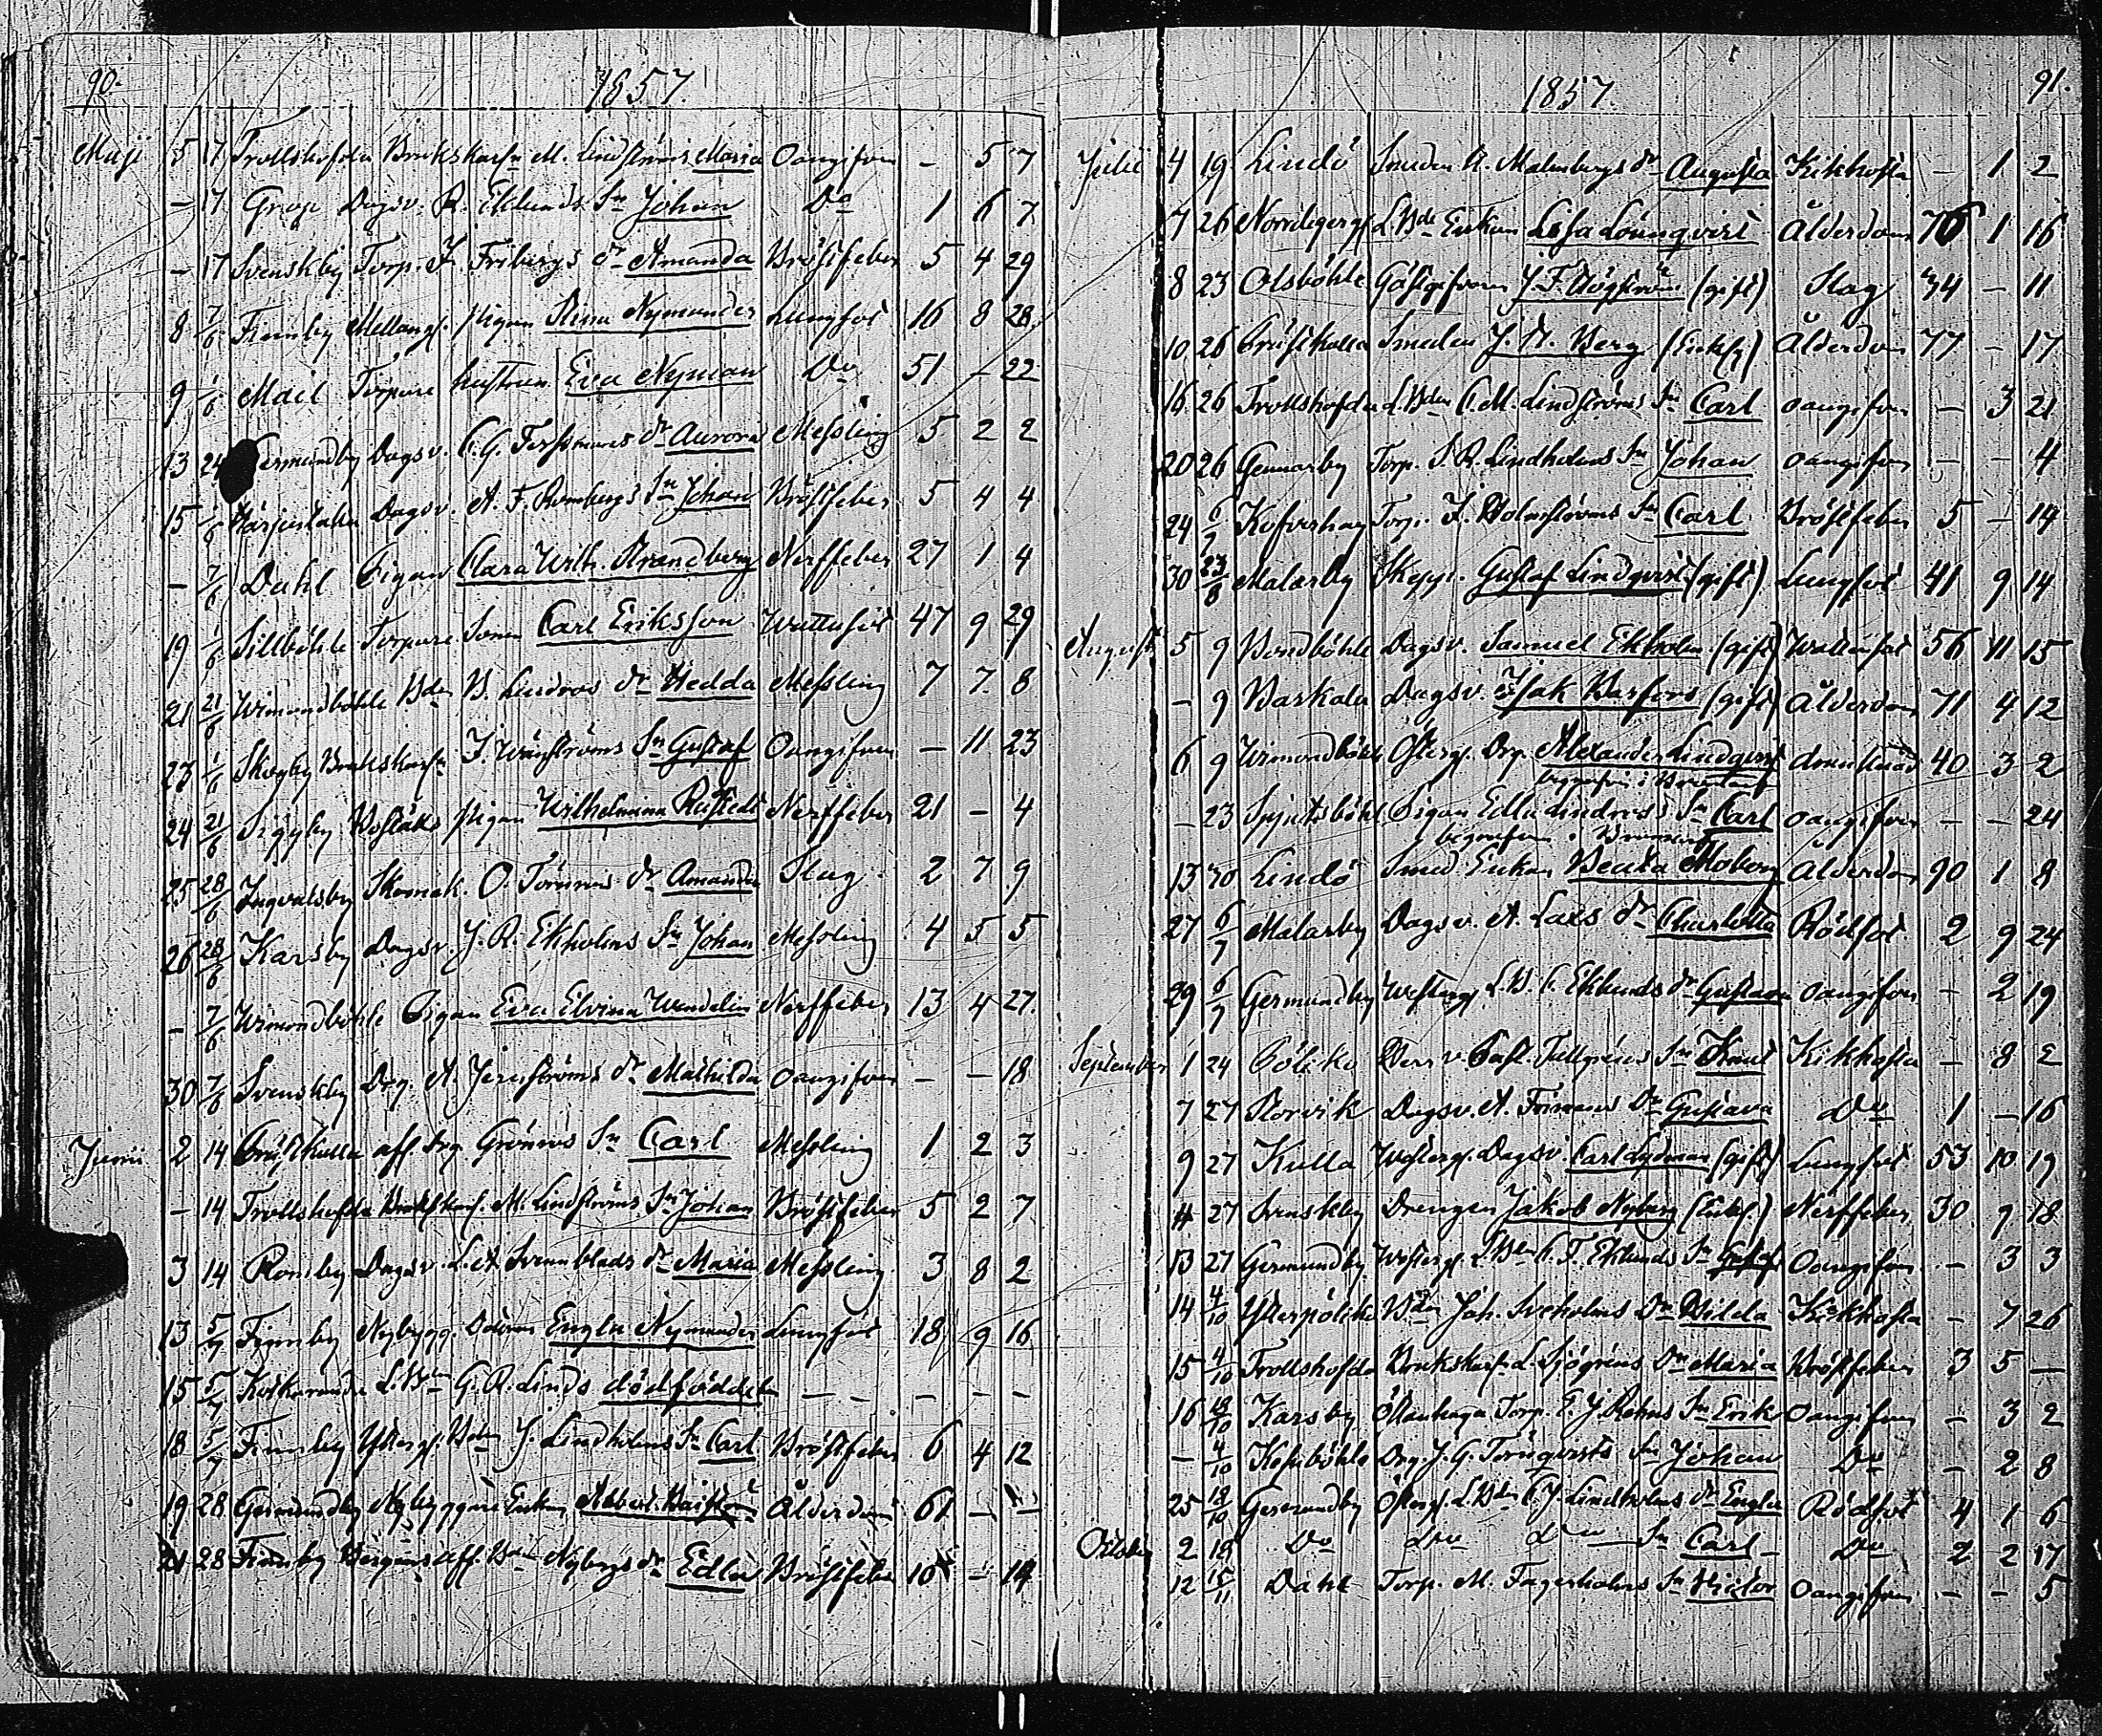 90. 1857.
Maji 5 17 Trollshofda Brukskarln M. Lindströms Maria Oangifven - 5 7
- 17 Grop Dagsv. R. Eklunds Sn Johan Do 1 6 7
- 17 Svenskby Torp. F. Fribergs dr Amanda Bröstfeber 5 4 29
8 7/6 Finnby Mellang. pigan Stina Nymander Lungsot 16 8 28
9 1/6 Mail Torpare hustrun Eva Nyman Do 51 - 22
13 24 Germundby Dagsv. C. G. Forssmans dr Aurora Messling 5 2 2
15 1/6 Dagsv. A. F. Rombergs Sn Johan Bröstfeber 5 4 4
- 7/6 Dahl Pigan Clara Wilh. Strandberg Nerffeber 27 1 4
19 1/6 Sillböhle Torpare Sonen Carl Eriksson Wattusot 47 9 29
21 21/6 Wimondböhle Bden B. Lindroos dr Hedda Messling 7 7 8
23 1/6 Skogby Brukskarln J. Wänströms Sn Gustaf Oangifven - 11 23
24 21/6 Siggby pigan Wilhelmina Nerffeber 21 - 4
25 28/6 Ingvalsby Skomak. O. Törnroos dr Amanda Slag 2 7 9
26 28/6 Karsby Dagsv. J. R. Ekholms Sn Johan Messling 4 5 5
- 7/6 Wimondböhle Pigan Eva Elvina Wendelin Nerffeber 13 4 27.
30 7/6 Svenskby Drg. A. Jernströms dr Mathilda oangifven - - 18
Junii 2 14 Prästkulla aff. drg Grönroos Sn Carl Messling 1 2 3
- 14 Trollshofda Brukskarl. M. Lindströms Sn Johan Bröstfeber 5 2 7
3 14 Romby Dagsv. L. A. Svennblads dr Maria Messling 3 8 2
13 5/7 Finnby Nybygg. Dottern Engla Nymander Lungsot 18 9 16
15 5/7 L. Bden G. R. Linds dödfödde - - - -
18 5/7 Finnby Ytterg. Bden J. Lindholms Sn Carl Bröstfeber 6 4 12
19 28 Germundby Nybyggare Enkan Ålderdom 61 - -
21 28 Finnby aff. Bd Nybergs dr Edla Bröstfeber 10 - 14
1857. 91.
Julii 4 19 Lindö Smeden A. Malmbergs dr Augusta Kikhosta - 1 2
7 26 L. Bde Enkan Lisa Lönnqvist Ålderdom 76 1 16
8 23 Olsböhle Gästgifvaren J. F. Högström (gift) Slag 34 - 11
10 26 Prästkulla Smeden J. A. Berg (Enkl.) Ålderdom 77 - 17
16 26 Trollshofda L. Bden C. M. Lindströms Sn Carl oangifven - 3 21
20 26 Gennarby Torp. S. R. Lindholms Sn Johan oangifven - - 4
24 6/9 Torp. F. Holmströms Sn Carl Bröstfeber 5 - 14
30 23/8 Malarby Skepp. Gustaf Lindqvist (gift) Lungsot 41 9 14
August 5 9 Bondböhle Dagsv. Samuel Ekholm (gift) Wattusot 56 11 15
- 9 Baskala Dagsv. Isak Barfors (gift) Ålderdom 71 4 12
6 9 Wimondböhle Österg. Drg. Alexander Lindqvist drunknad 40 3 2
begrafven i
- 23 Spjutsböhle Pigan Edla Lindroos Sn Carl oangifven - - 24
begrafven i Bromarf
13 30 Lindö Smed. Enkan Beata Moberg Ålderdom 90 1 8
27 6/9 Malarby Dagsv. A. Laxs dr Charlotta Rödsot 2 9 24
29 6/9 Germundby Westerg. L. B. C. Eklunds dr Gustava oangifven - 2 19
September 1 24 Pölska Past. Tallgréns Sn Knut Kikhosta - 8 2
7 27 Rorvik Dagsv. A. Forsmans Dr Gustava Do 1 - 16
9 27 Kulla Westerg. Dagsv. Carl Lydman (gift) Lungsot 53 10 19
11 27 Svenskby Drengen Jakob Nyberg (Enkl.) Nerffeber 30 9 18
13 27 Germundby Westerg. L. Bden C. F. Eklunds Sn Gustaf Oangifven - 3 3
14 4/10 Ytterpölska Bden Joh. Sveholms Dr Hilda Kikhosta - 7 26
15 4/10 Trollshofda Brukskarl. L. Sjögréns Dr Maria Bröstfeber 3 5 -
16 18/10 Karsby Östanhaga Torp. E. J. Rehns Sn Erik Oangifven - 3 2
- 4/10 Drg. J. G. Törnqvists Sn Johan Do - 2 8
25 18/10 Germundby Österg. L. Bden C. J. Lindholms dr Engla Rödsot 4 1 6
Octob. 2 18 Do do do Sn Carl Do 2 2 17
12 15/11 Dahl Torp. M. Fagerholms Sn Victor oangifven - - 5